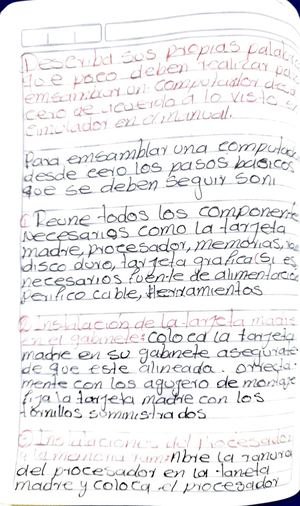 Describa sus propias palabras
que paso deben realizar para
emsamblar un computador desde
cero de acuerdo a lo visto
simulador en el manual.
Para emsamblar una computado
desde cero los pasos basicos
que se deben seguir son:
① Reune todos los componente
necesarios como la tarjeta
madre, procesador, memorias,
disco duro, tarjeta grafica (Si es
necesarios fuente de alimentació
Perifico cable, Herramientos
② Instalación de la tarjeta madre
en el gabinete: coloca la tarjeta
madre en su gabinete asegurate
de que este alineada. correcta-
mente con los agujero de montaje
fija la tarjeta madre con los
tornillos suministrados
③ Instalaciones del procesador
y la memoria ram: Abre la ranura
del procesador en la tarjeta
madre y coloca el procesador